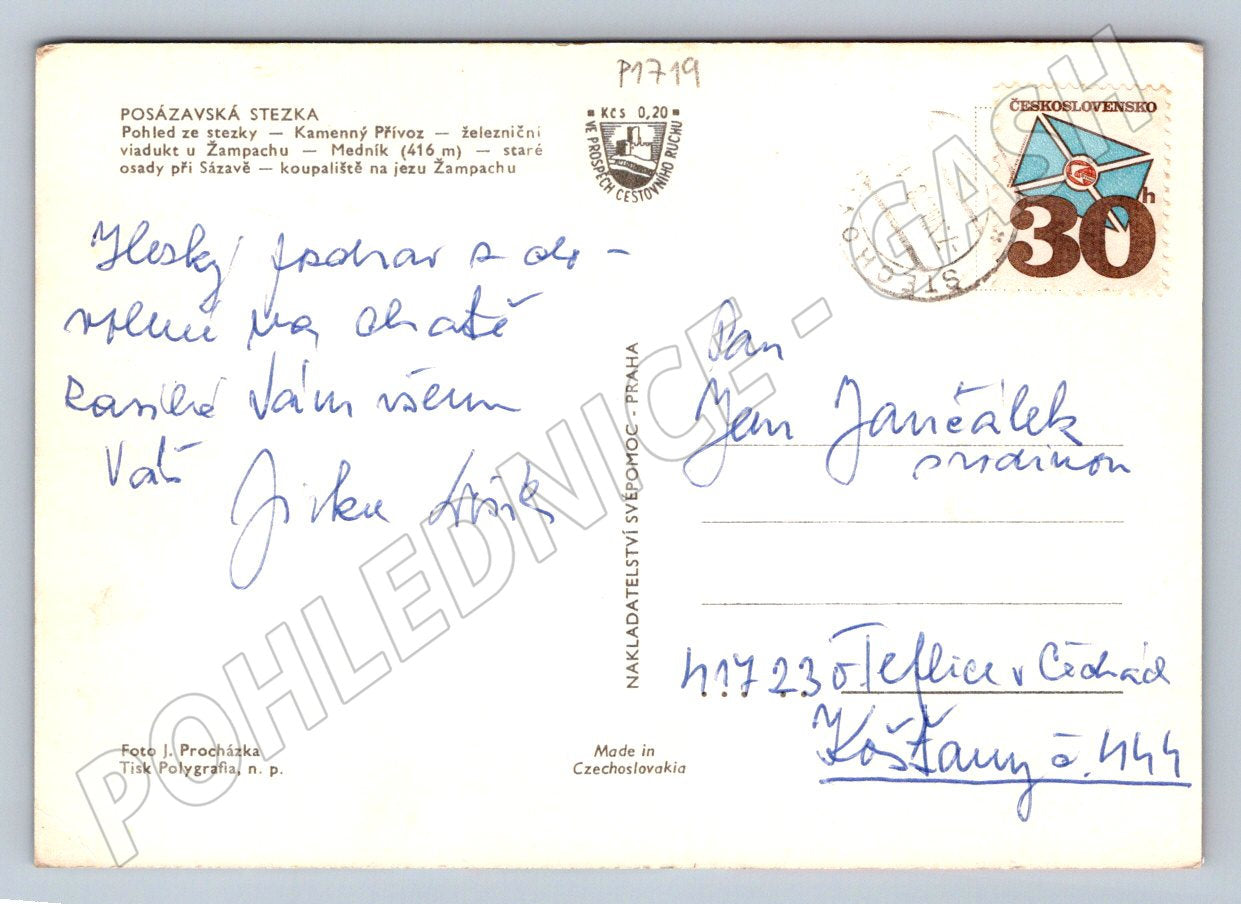 P1719
POSÁZAVSKÁ STEZKA
Pohled ze stezky — Kamenný Přívoz — železniční
viadukt u Žampachu — Medník (416 m) — staré
osady při Sázavě — koupaliště na jezu Žampachu
Kčs 0,20
VE PROSPĚCH CESTOVNÍHO RUCHU
ČESKOSLOVENSKO
30h
ŠTĚCHO
Hezký pozdrav z do-
volené na chatě
zasílá Vám všem
Váš Jirka
NAKLADATELSTVÍ SVÉPOMOC - PRAHA
Pan
Jan Jančálek
s rodinou
417 23 o Teplice v Čechách
Košťany č. 444
Foto J. Procházka
Tisk Polygrafia, n. p.
Made in
Czechoslovakia
POHLEDNICE - GASH